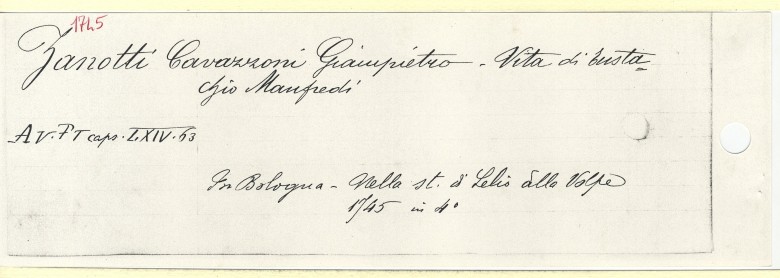 1745
Zanotti Cavazzoni Giampietro - Vita di Eusta=
chio Manfredi
AV. PT caps. LXIV. 63
In Bologna - Nella st. di Lelio dalla Volpe
1745 in 4°